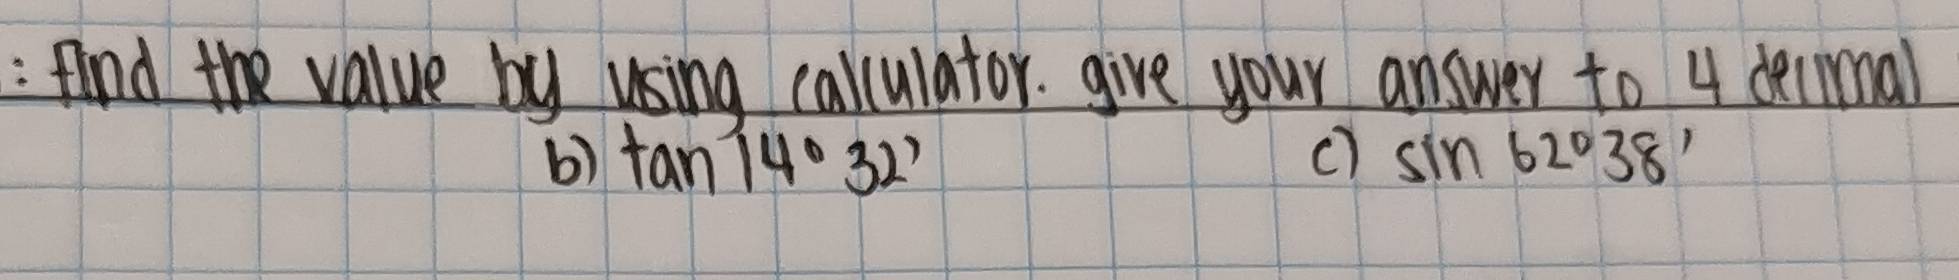 : find the value by using calculator. give your answer to 4 decimal
b) tan 14° 32' c) sin 62°38'